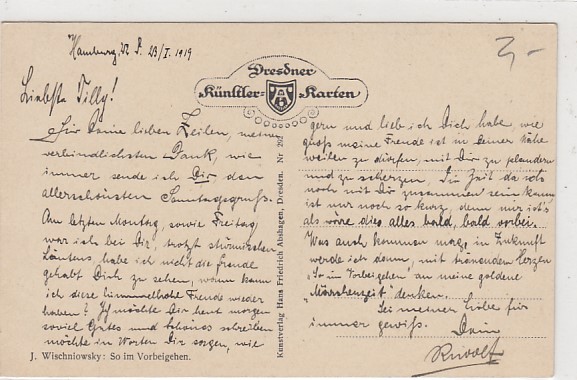 Hamburg, 23/I. 1919
Liebste Tilly!
Für Deine lieben Zeilen, meinen
verbindlichsten Dank, wie
immer sende ich Dir den
allerschönsten Sonntagsgruß.
Am letzten Montag, sowie Freitag
war ich bei Dir, trotz stürmischen
Läutens, habe ich nicht die Freude
gehabt Dich zu sehen, wann kann
ich diese himmelhohe Freude wieder
haben? Ich möchte Dir heut morgen
soviel Gutes und Schönes schreiben
möchte in Worten Dir sagen, wie
J. Wischniowsky: So im Vorbeigehen.
Dresdner
Künstler-Karten
Kunstverlag Hans Friedrich Abshagen, Dresden. Nr 292
gern und lieb ich Dich habe, wie
groß meine Freude ist in Deiner Nähe
weilen zu dürfen, mit Dir zu plaudern
und zu scherzen. Die Zeit da ich
noch mit Dir zusammen sein kann,
ist nur noch so kurz, denn mir ist's
als wäre dies alles bald, bald vorbei.
Was auch kommen mag, in Zukunft
werde ich dann, mit tränendem Herzen
"So im Vorbeigehen" an meine goldene
"Märchenzeit" denken.
Sei meiner Liebe für
immer gewiß. Dein
Rudolf